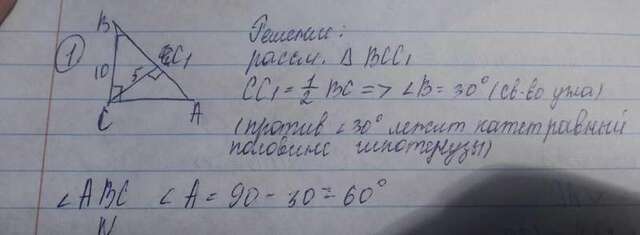 1
B
C₁
10
5
C
A
Решение:
рассм. Δ BCC₁
CC₁ = 1/2 BC => ∠B = 30° (св-во угла)
(против ∠30° лежит катет равный
половине гипотенузы)
∠ABC ∠A = 90 - 30 = 60°